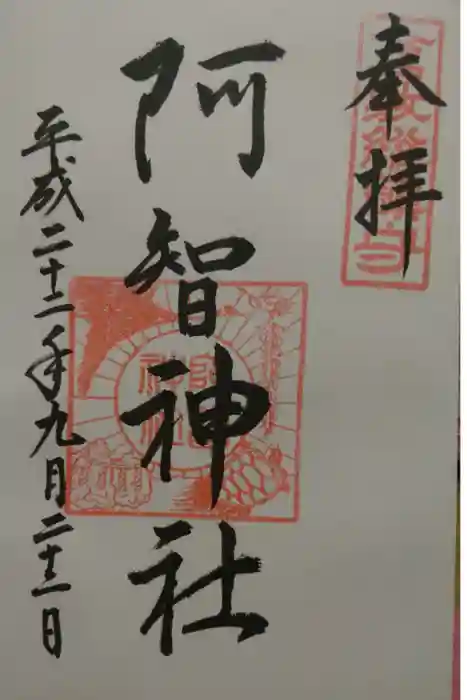 奉拝
阿智神社
平成二十二年九月二十三日